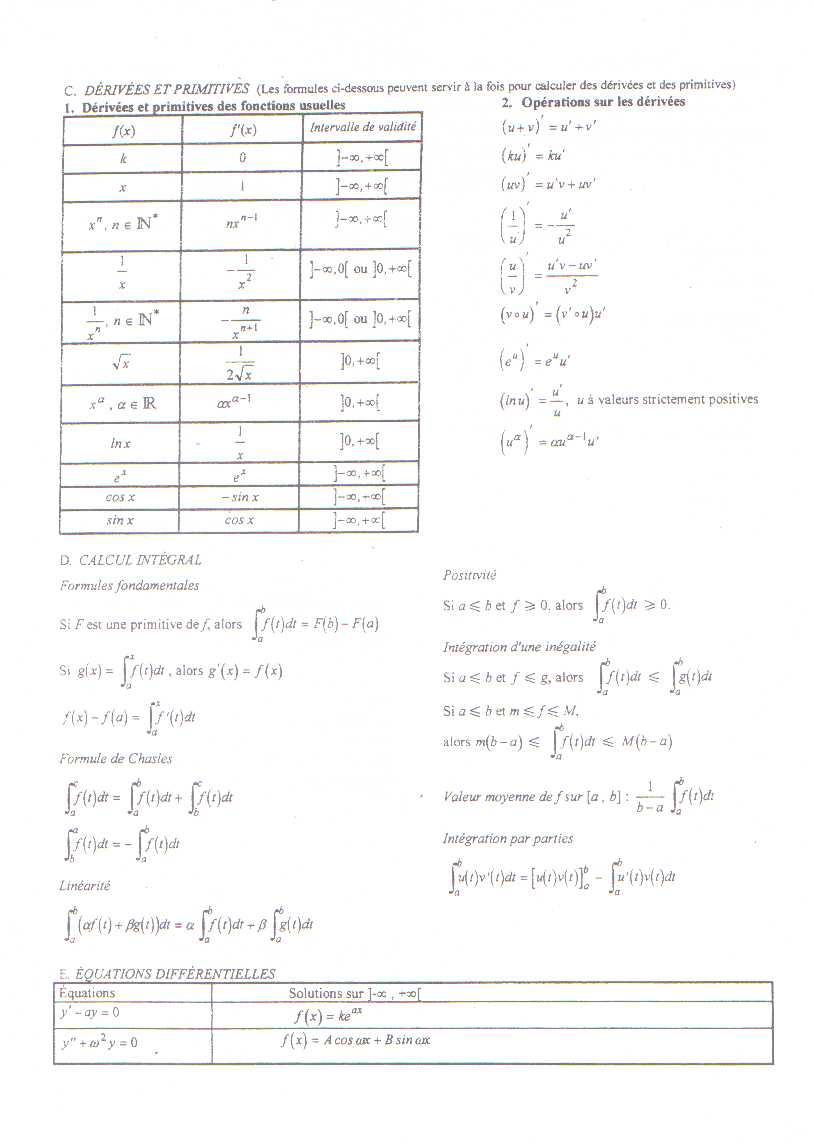 C. DÉRIVÉES ET PRIMITIVES (Les formules ci-dessous peuvent servir à la fois pour calculer des dérivées et des primitives)
1. Dérivées et primitives des fonctions usuelles
f(x) f'(x) Intervalle de validité
k 0 ]–∞,+∞[
x 1 ]–∞,+∞[
xⁿ, n ∈ ℕ* nxⁿ⁻¹ ]–∞,+∞[
1/x –1/x² ]–∞,0[ ou ]0,+∞[
1/xⁿ, n ∈ ℕ* –n/xⁿ⁺¹ ]–∞,0[ ou ]0,+∞[
√x 1/(2√x) ]0,+∞[
x^α, α ∈ ℝ αx^(α–1) ]0,+∞[
ln x 1/x ]0,+∞[
eˣ eˣ ]–∞,+∞[
cos x – sin x ]–∞,+∞[
sin x cos x ]–∞,+∞[
2. Opérations sur les dérivées
(u+v)' = u'+v'
(ku)' = ku'
(uv)' = u'v+uv'
(1/u)' = –u'/u²
(u/v)' = (u'v–uv')/v²
(v∘u)' = (v'∘u)u'
(e^u)' = e^u u'
(ln u)' = u'/u, u à valeurs strictement positives
(u^α)' = αu^(α–1)u'
D. CALCUL INTÉGRAL
Formules fondamentales
Si F est une primitive de f, alors ∫_a^b f(t)dt = F(b) – F(a)
Si g(x) = ∫_a^x f(t)dt, alors g'(x) = f(x)
f(x) – f(a) = ∫_a^x f'(t)dt
Formule de Chasles
∫_a^c f(t)dt = ∫_a^b f(t)dt + ∫_b^c f(t)dt
∫_b^a f(t)dt = – ∫_a^b f(t)dt
Linéarité
∫_a^b (αf(t) + βg(t))dt = α ∫_a^b f(t)dt + β ∫_a^b g(t)dt
Positivité
Si a ⩽ b et f ⩾ 0, alors ∫_a^b f(t)dt ⩾ 0.
Intégration d'une inégalité
Si a ⩽ b et f ⩽ g, alors ∫_a^b f(t)dt ⩽ ∫_a^b g(t)dt
Si a ⩽ b et m ⩽ f ⩽ M,
alors m(b–a) ⩽ ∫_a^b f(t)dt ⩽ M(b–a)
Valeur moyenne de f sur [a , b] : 1/(b–a) ∫_a^b f(t)dt
Intégration par parties
∫_a^b u(t)v'(t)dt = [u(t)v(t)]_a^b – ∫_a^b u'(t)v(t)dt
E. ÉQUATIONS DIFFÉRENTIELLES
Équations Solutions sur ]-∞ , +∞[
y' – ay = 0 f(x) = ke^(ax)
y'' + ω²y = 0 f(x) = A cos ωx + B sin ωx